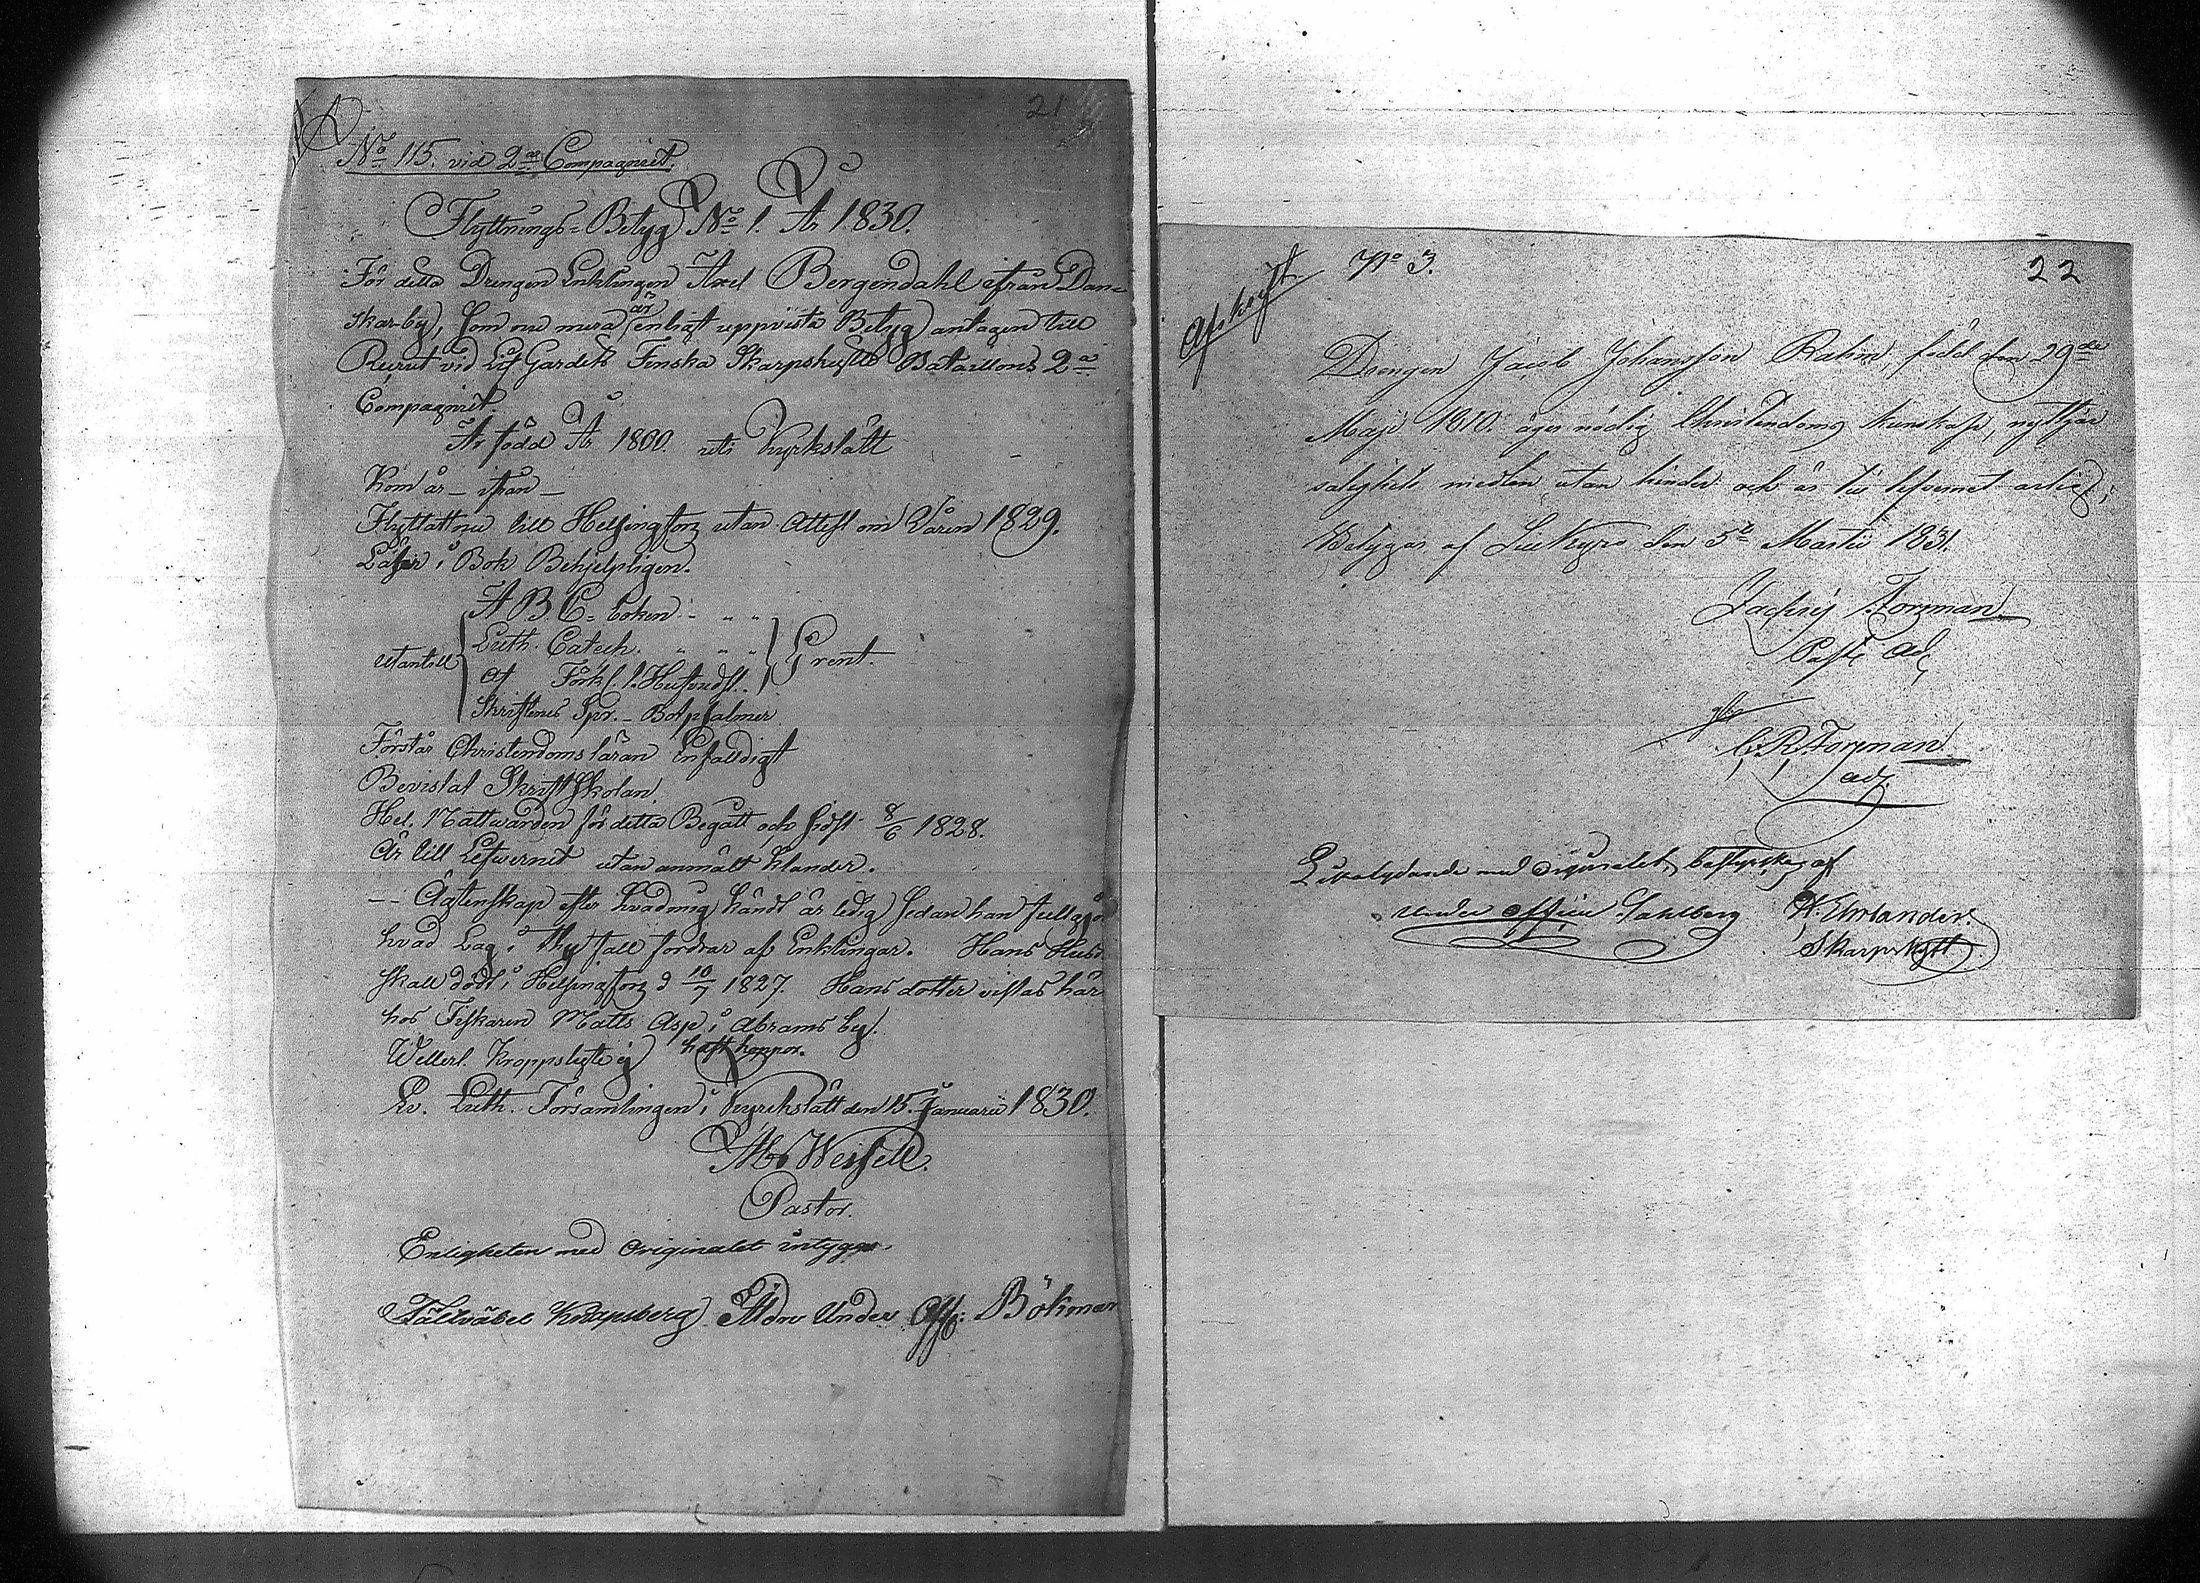 21
No 115. vid 2ra Compagniet.
Flyttnings-Betyg No 1. År 1830.
För detta Drengen Enklingen Axel Bergendahl ifrån Dan=
skarby, som nu mera är enligt uppvista Betyg antagen till
Recrut vid Lif Gardets Finska Skarpskytte Bataillons 2a
Compagniet.
Är född År 1800. uti Kyrkslätt
Kom år – ifrån –
Flyttat nu till Helsingfors utan Attest om Våren 1829.
Läser i Bok Behjelpligen.
A B C-boken
Luth. Catech.
utantill Grent.
af Förkl. l. Hustafl.
Skriftenes Spr. – Botpsalmer
Förstår Christendomsläran Enfaldigt
Bevistat Skriftskolan
Hel. Nattwarden för detta Begått och sidst 8/6 1828.
Är till Lefvernet utan anmält klander.
– – Ägtenskap efter hvad mig händt är ledig sedan han fullgjort
hvad Lag i thy fall fordrar af Enklingar. Hans Hust.
skall dödt i Helsingfors d 10/7 1827. Hans dotter vistas här
hos Fiskaren Matts Asp i Abrams by.
Wellerl. Kroppslyte ej haft koppor.
Ev. Luth. Församlingen i Kyrckslätt den 15. Januarii 1830.
Wessell.
Pastor.
Enligheten med Originalet intygar,
Fältväbel Knapsberg Äldre Under Off: Bökman
22
Afskrift
No 3.
Drengen Jacob Johansson Rahm, född den 29de
Maji 1810. äger nödig Christendoms kunskap, nyttjar
salighets medlen utan hinder och är till lefvernet ärlig;
Betygar af Storkyro den 5te Martii 1831.
Zachris Forsman
Past. Adj.
C. R. Forsman
adj.
Lika lydande med originalet, besiktigat af
Under officer Sahlberg W. Urlander.
Skarpskytt